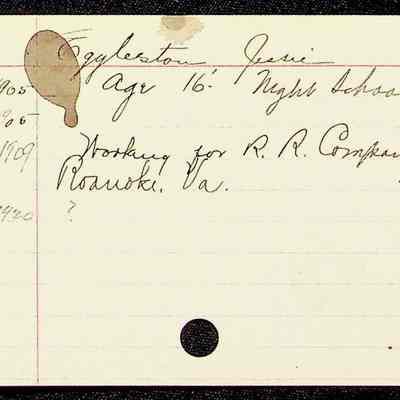 Eggleston Jessie
1905 Age 16. Night Schoo
1905
1909 Working for R. R. Compan
Roanoke, Va.
1920 ?